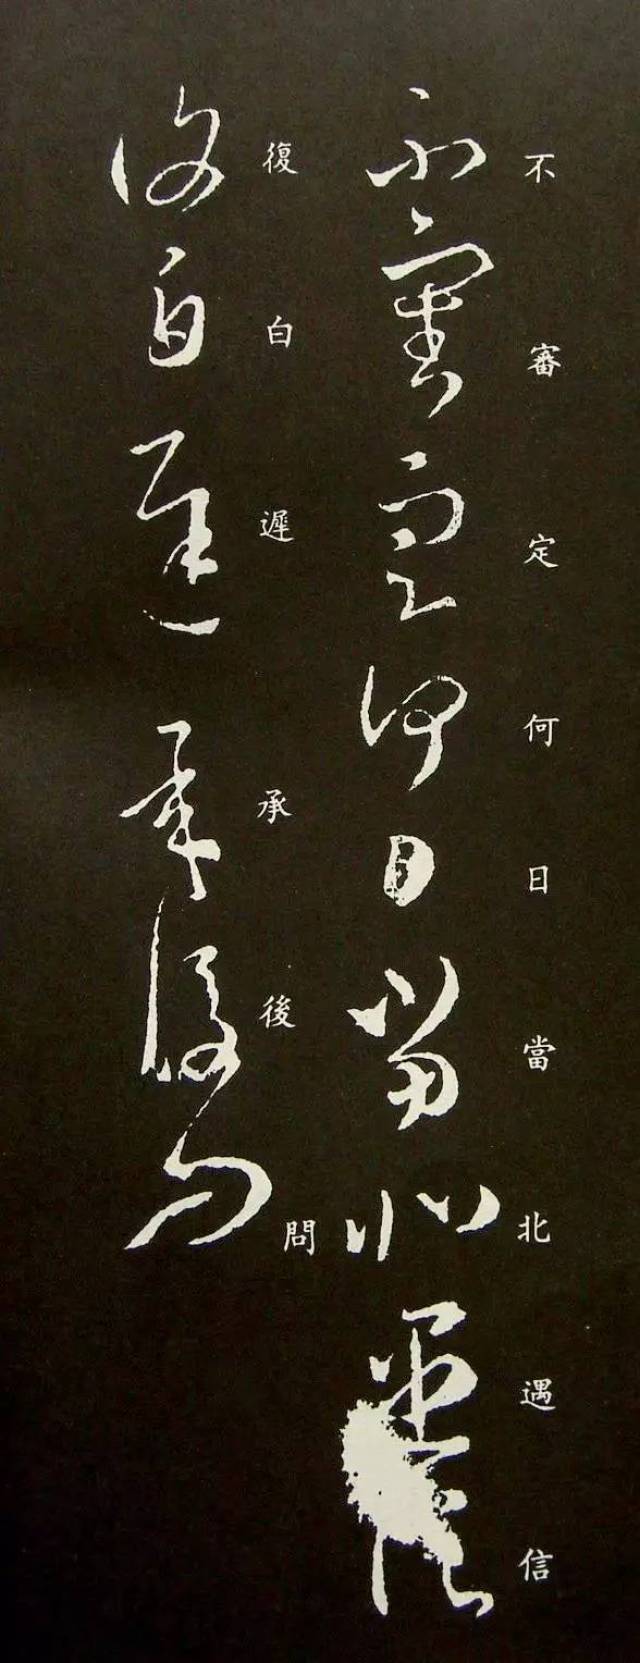 不審定何日當北遇信
復白遲承後問